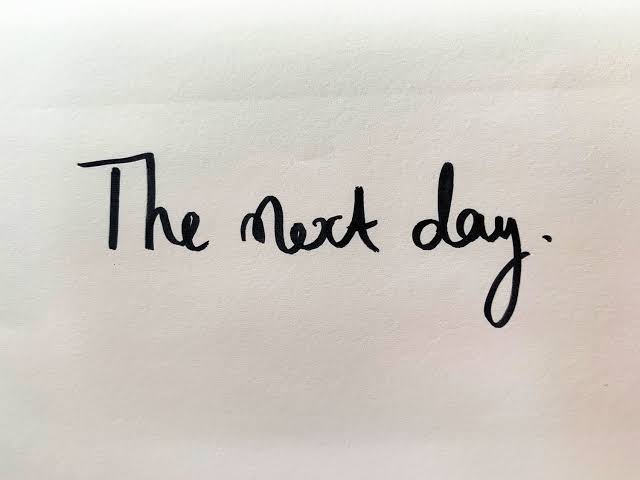 The next day.